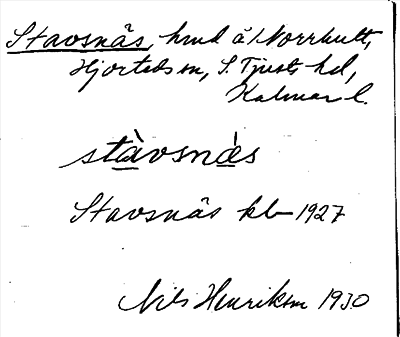 Stavsnäs, hmd å Norrhult,
Hjorteds sn, S. Tjusts hd,
Kalmar l.
stàvsnäs
Stavsnäs kb 1927
Nils Henrikson 1930